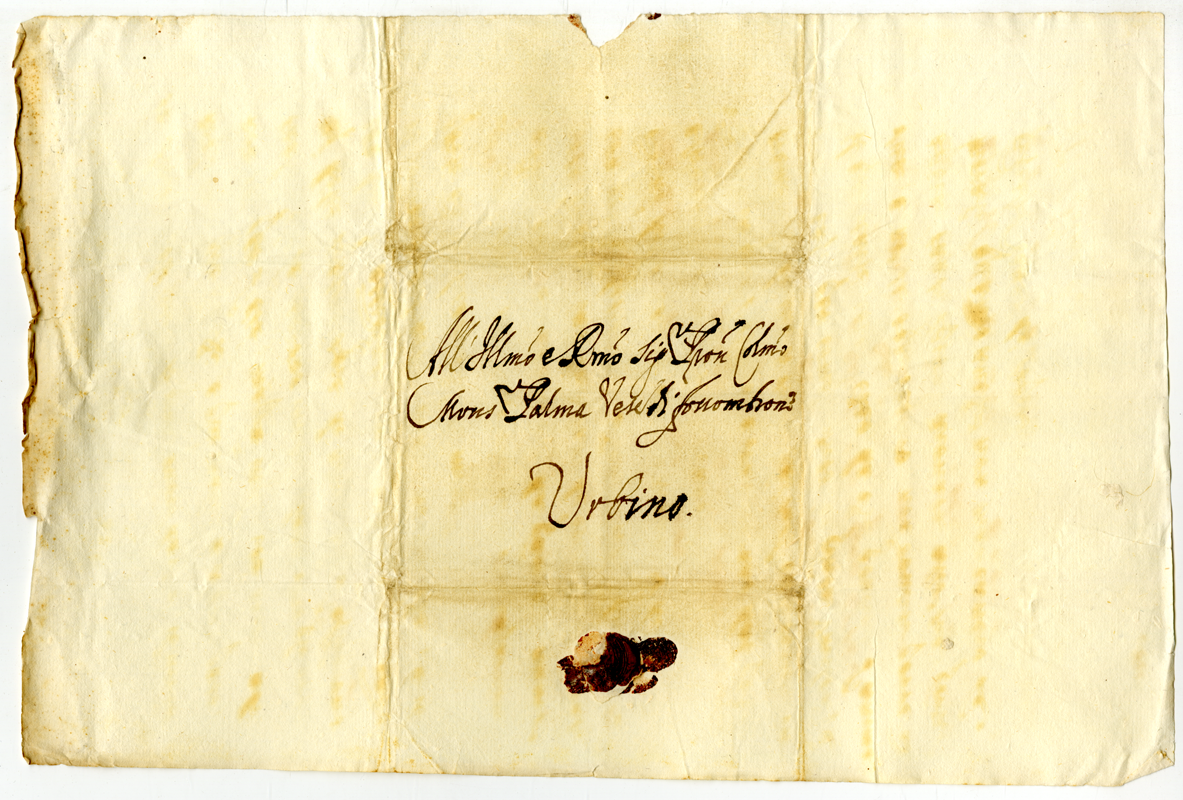 All' Illmo e Rmo Sig Pron Colmo
Mons Palma Veso di fossombrone
Urbino.